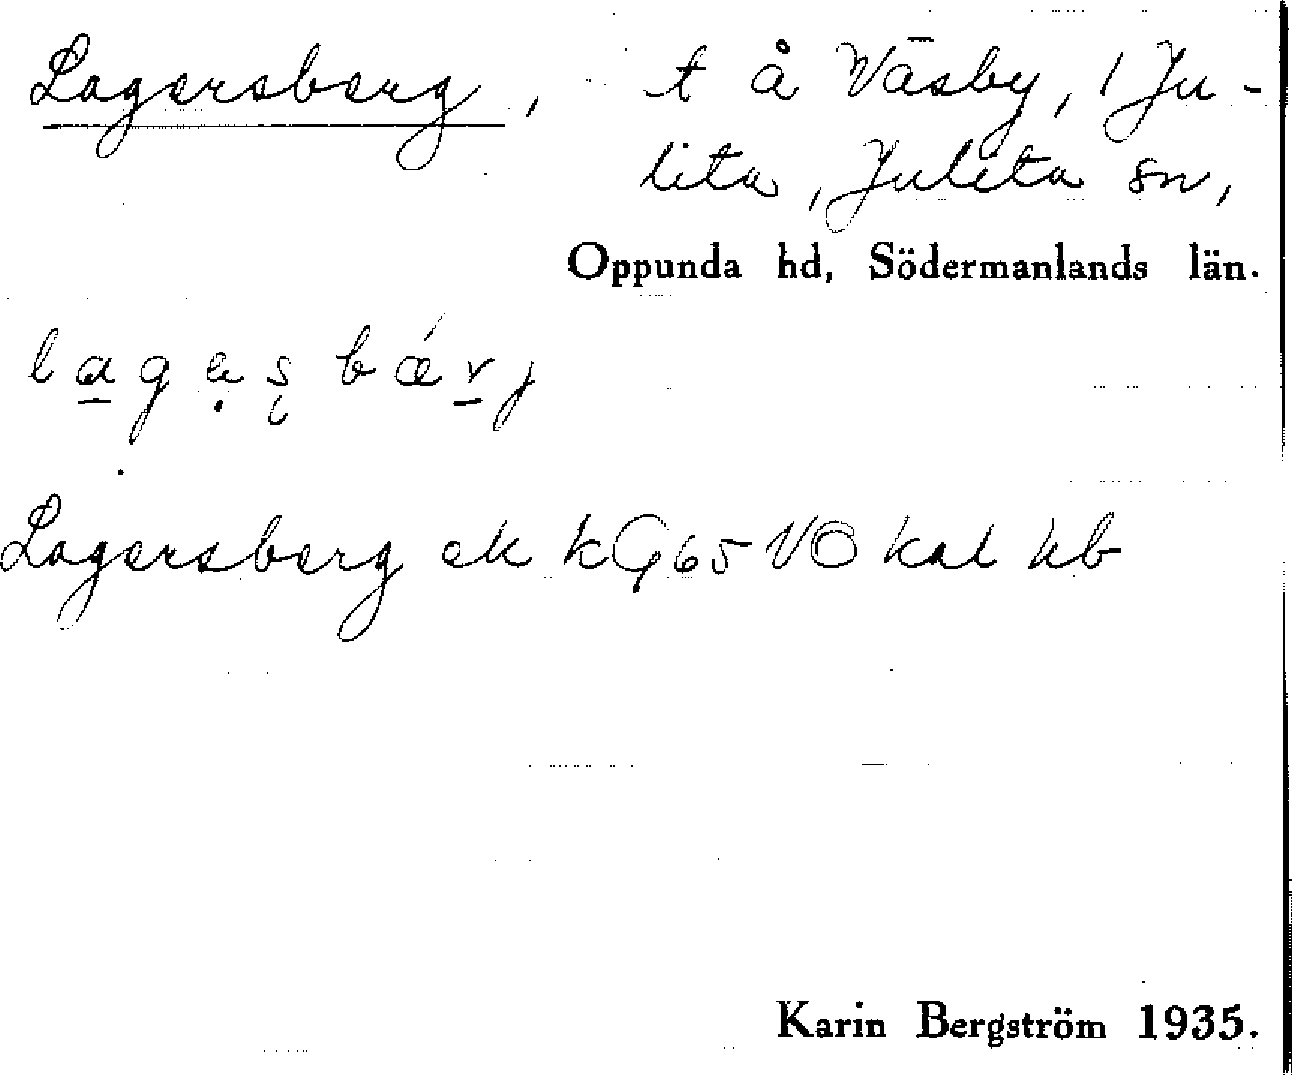 Lagersberg, t å Väsby, 1 Ju-
lita, Julita sn,
Oppunda hd, Södermanlands län.
lagesbærj
Lagersberg ek kG65 VO kal hb
Karin Bergström 1935.